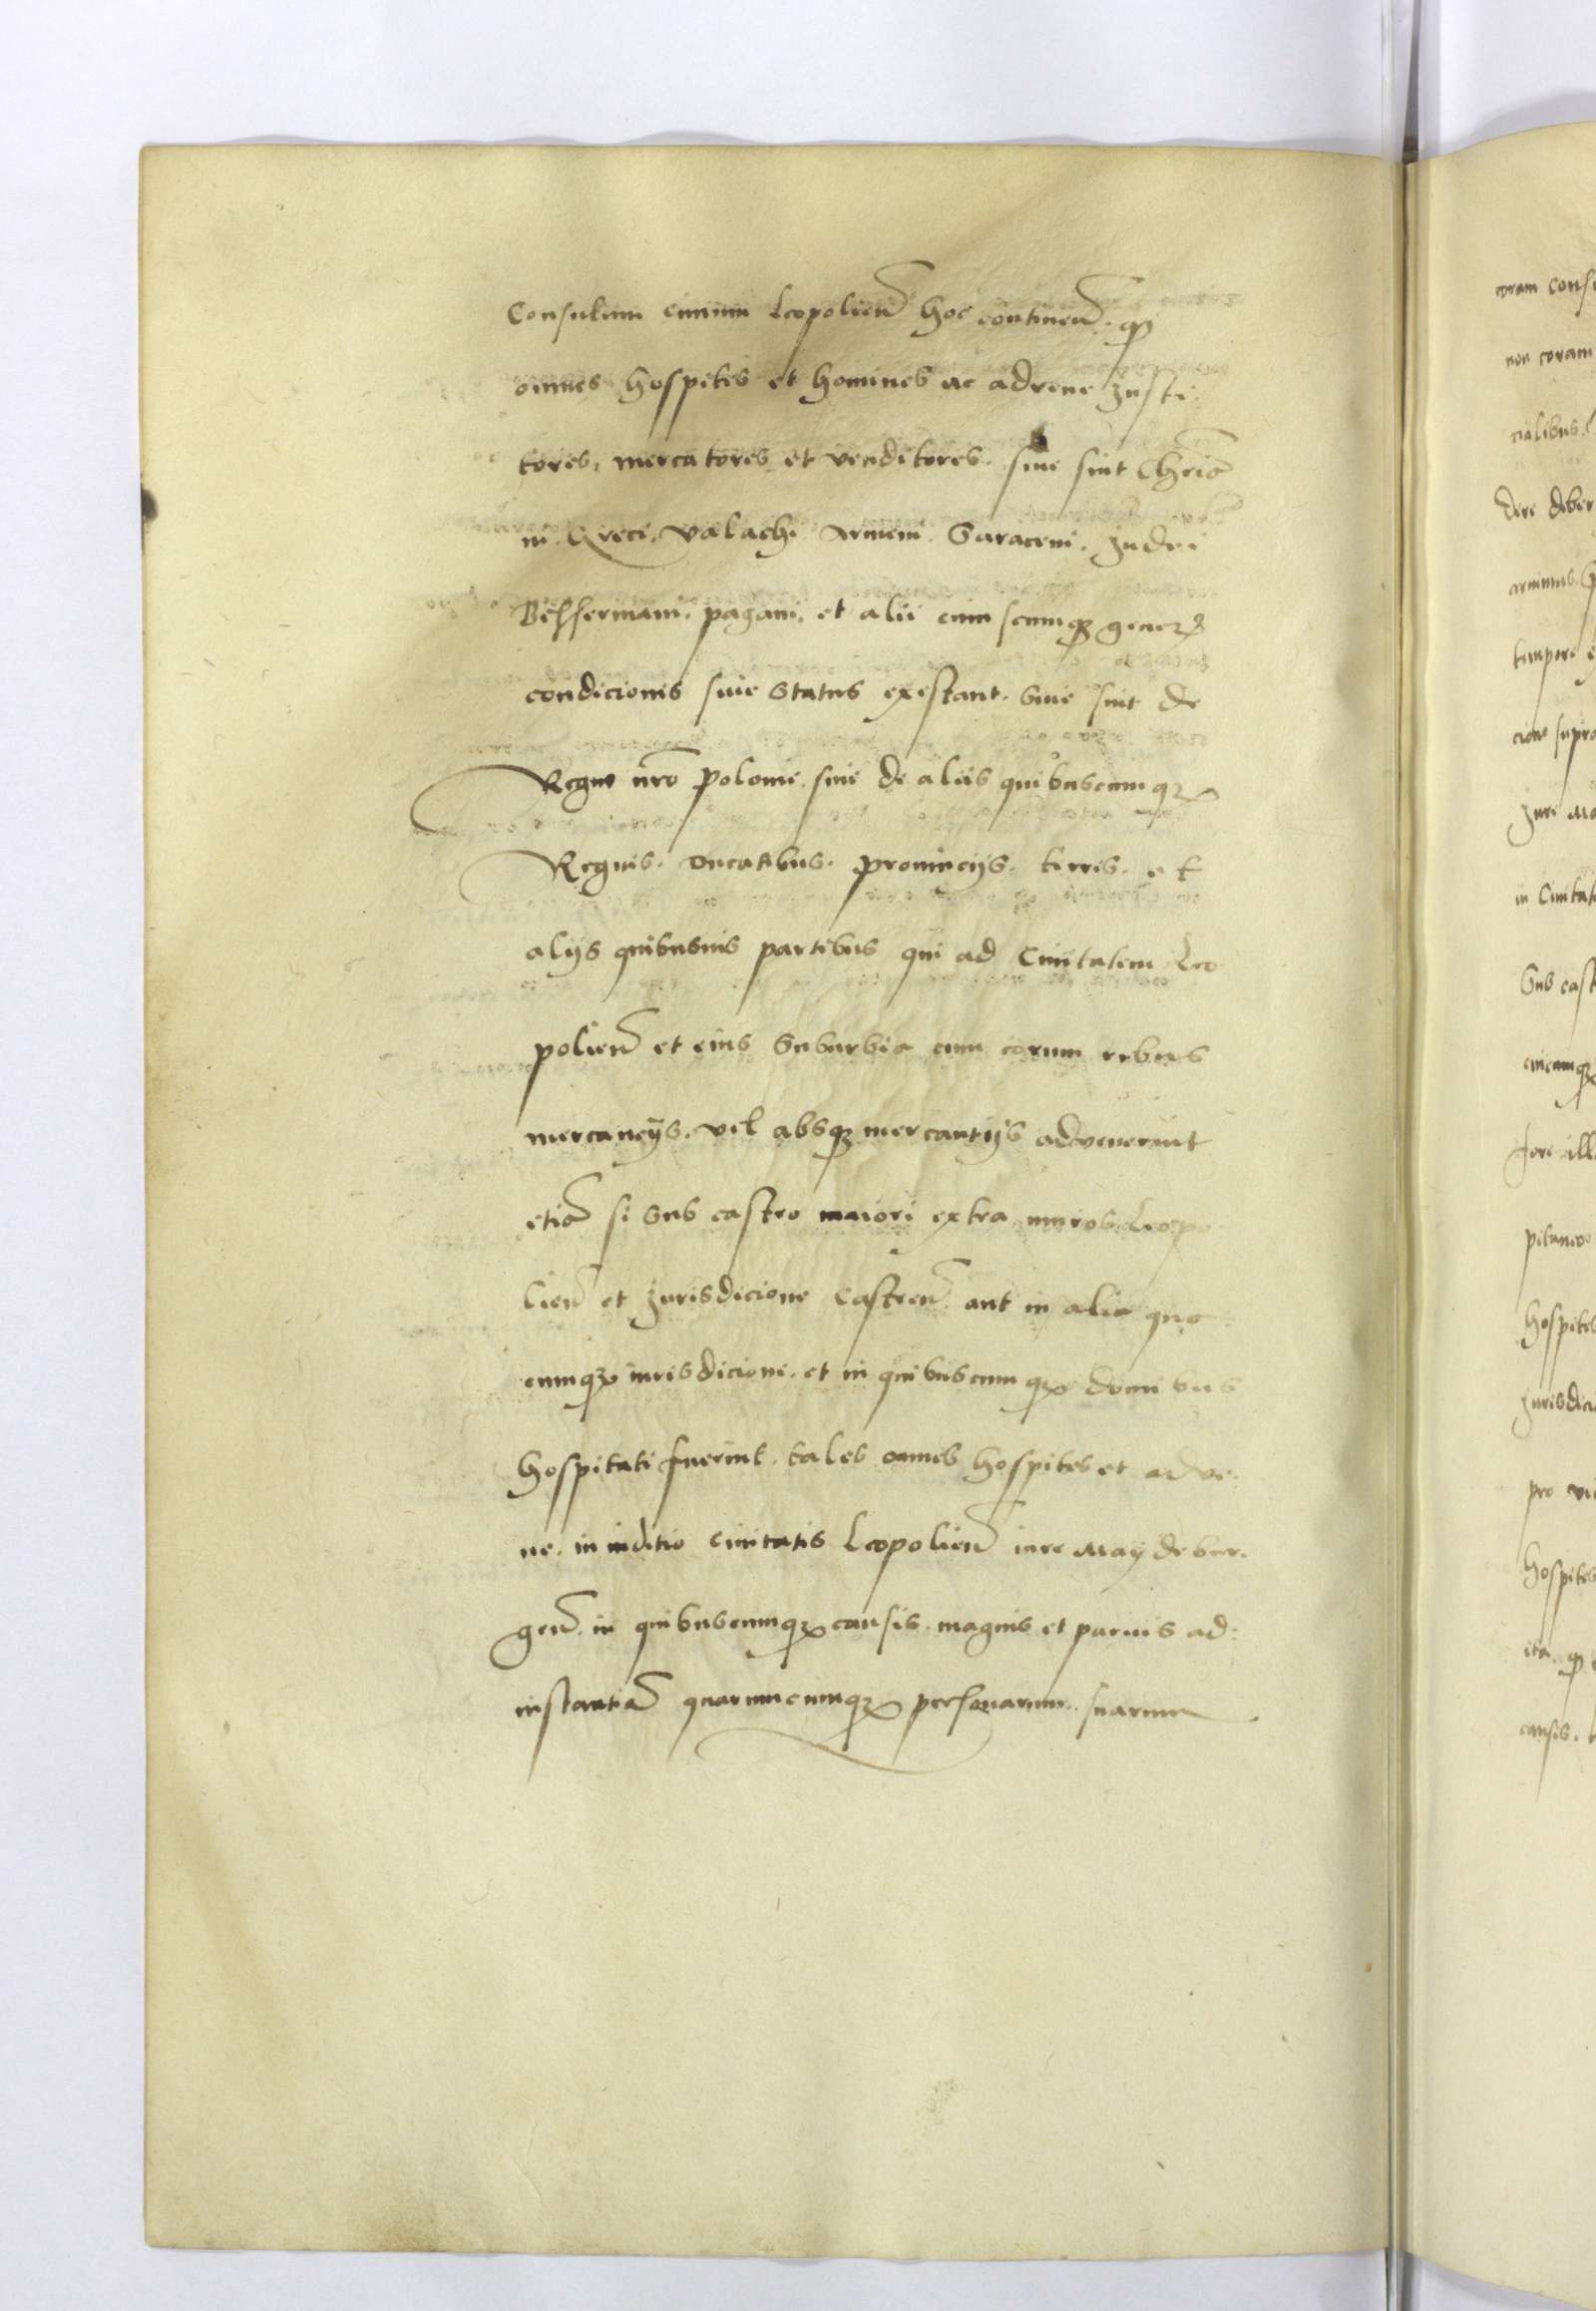 Consulum ciuium Leopolien̄ hoc continen̄. qȝ
omnes hospites et homines ac advene Insti
tores, mercatores et venditores. siue sint Chr̄ia
ni. Greci. Valachi Armeni. Saraceni. Iudei
Bessermani. pagani. et alii cuiuscumqȝ generis
condicionis siue status existant. siue sint de
Regno nr̄o Polonie. siue de aliis quibuscumqȝ
Regnis. ducatibus. prouincijs. terris. et
alijs quibusuis partibus qui ad Ciuitatem Leo
polien̄ et eius Suburbia cum eorum rebus
mercancijs. vel absqȝ mercantijs advenerint
etiā si sub castro maiori extra muros Leopo
lien̄ et Iurisdicione Castren̄ aut in alia qua
cumqȝ iurisdicione. et in quibuscumqȝ domibus
hospitati fuerint. tales omnes hospites et adve
ne. in iuditio ciuitatis Leopolien̄ iure Maydebur.
gen̄. in quibuscumqȝ causis. magnis et paruis ad:
instantiā quarumcumqȝ personarum. suarum
coram Consu
non coram
cialibus.
dere deber
tempore
cione supra
Iuri Ma
in Ciuitat
Sub cast
cuicumqȝ
fore ill
pitaneo
hospites
Iurisdici
pro
hospites
ita. qȝ
causis.